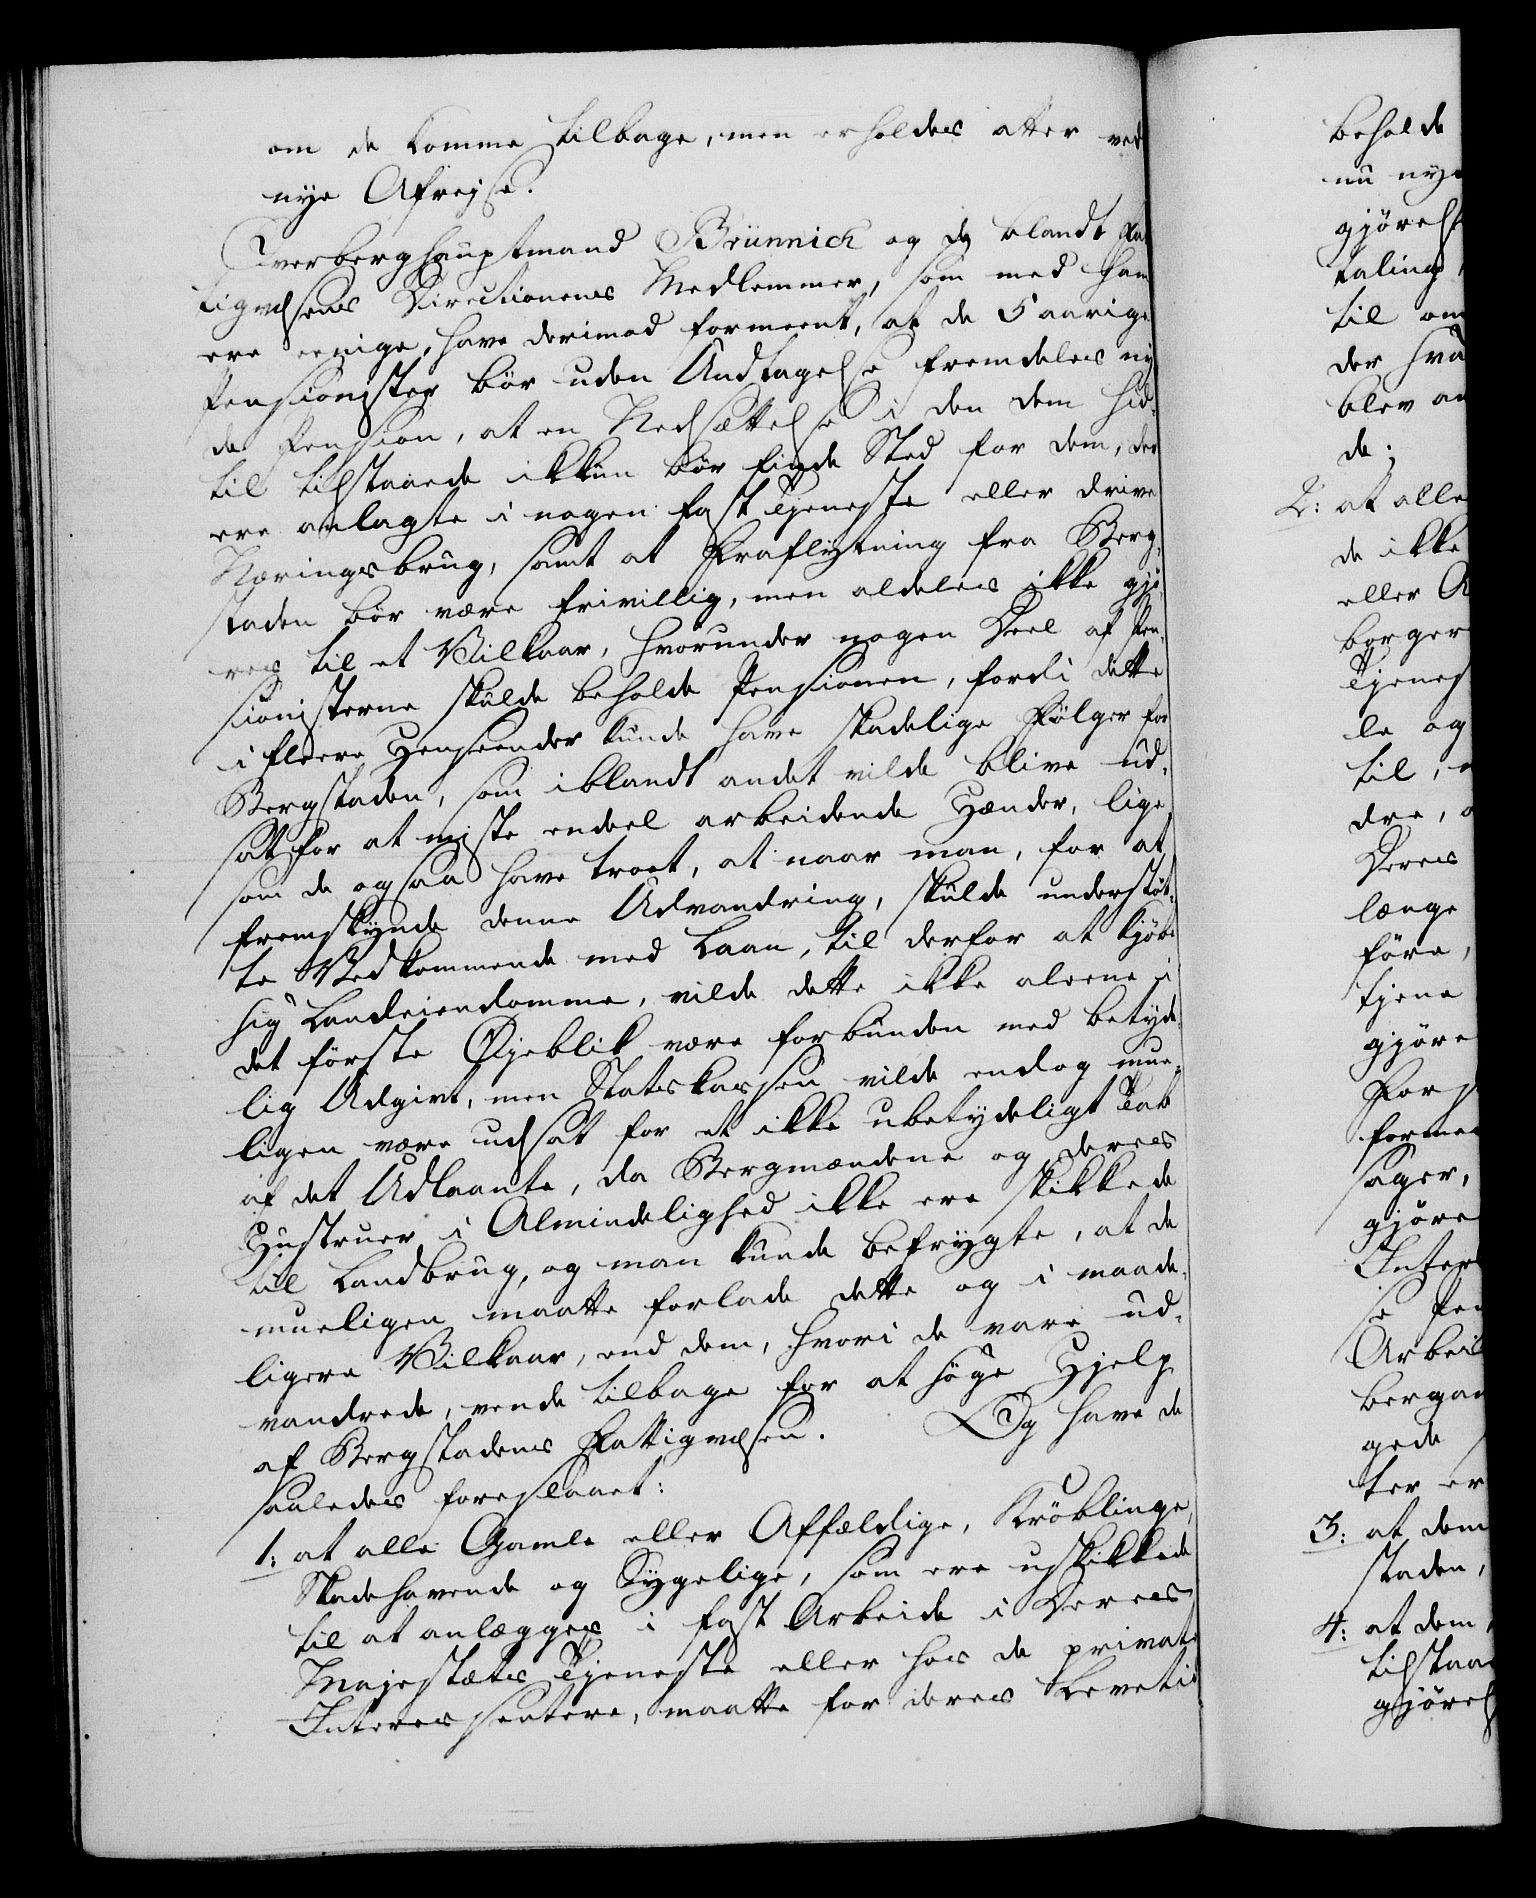 om de komme tilbage, men erholdes atter ved
nye Afrejse.
Overberghauptmand Brünnich og de blandt Fat
tigvæsens Directionens Medlemmer, som med ham
ere eenige, have derimod formeent, at de 5 aarige
Pensionister bör uden Undtagelse fremdeles ny
de Pension, at en Nedsættelse i den dem hid-
til tilstaaede ikkun bör finde Sted for dem, der
ere anlagte i nogen fast Tjeneste eller drive
Næringsbrug, samt at Fraflytning fra Berg-
staden bör være frivillig, men aldeles ikke gjö-
res til et Vilkaar, hvorunder nogen Deel af Pen-
sionisterne skulde beholde Pensionen, fordi dette
i fleere Henseender kunde have skadelige Fölger for
Bergstaden, som iblandt andet vilde blive ud-
sat for at miste endeel arbeidende Hænder, lige
som de ogsaa have troet, at naar man, for at
fremskynde denne Udvandring, skulde understöt-
te Vedkommende med Laan, til derfor at kjöbe
sig Landeiendomme, vilde dette ikke aleene i
det förste Öjeblik være forbunden med betyde-
lig Udgivt, men Statskassen vilde endog mue-
ligen være udsat for et ikke ubetydeligt Tab
af det Udlaante, da Bergmændene og deres
Hustruer i Almindelighed ikke ere skikkede
til Landbrug, og man kunde befrygte, at de
mueligen maatte forlade dette og i maade-
ligere Vilkaar, end dem, hvori de vare ud-
vandrede, vende tilbage for at söge Hjelp
af Bergstadens Fattigvæsen. Og have de
saaledes foreslaaet:
1: at alle Gamle eller Affældige, Kröblinge,
Skadehavende og Sygelige, som ere uskikkede
til at anlægges i fast Arbeide i Deres
Majestæts Tjeneste eller hos de private
Interessentere, maatte for deres Levetid
beholde
nu nyd
gjörels
taling
til om
der hva
blev an
de;
2: at alle
de ikke
eller A
borger
Tjenes
le og
til,
dre,
Deres
længe
före,
tjene
gjöre
For
forme
sager,
gjöre
Inter
se Pen
Arbeid
bergan
gede
ter er
3: at dem
staden,
4: at dem
tilstaa
gjörel